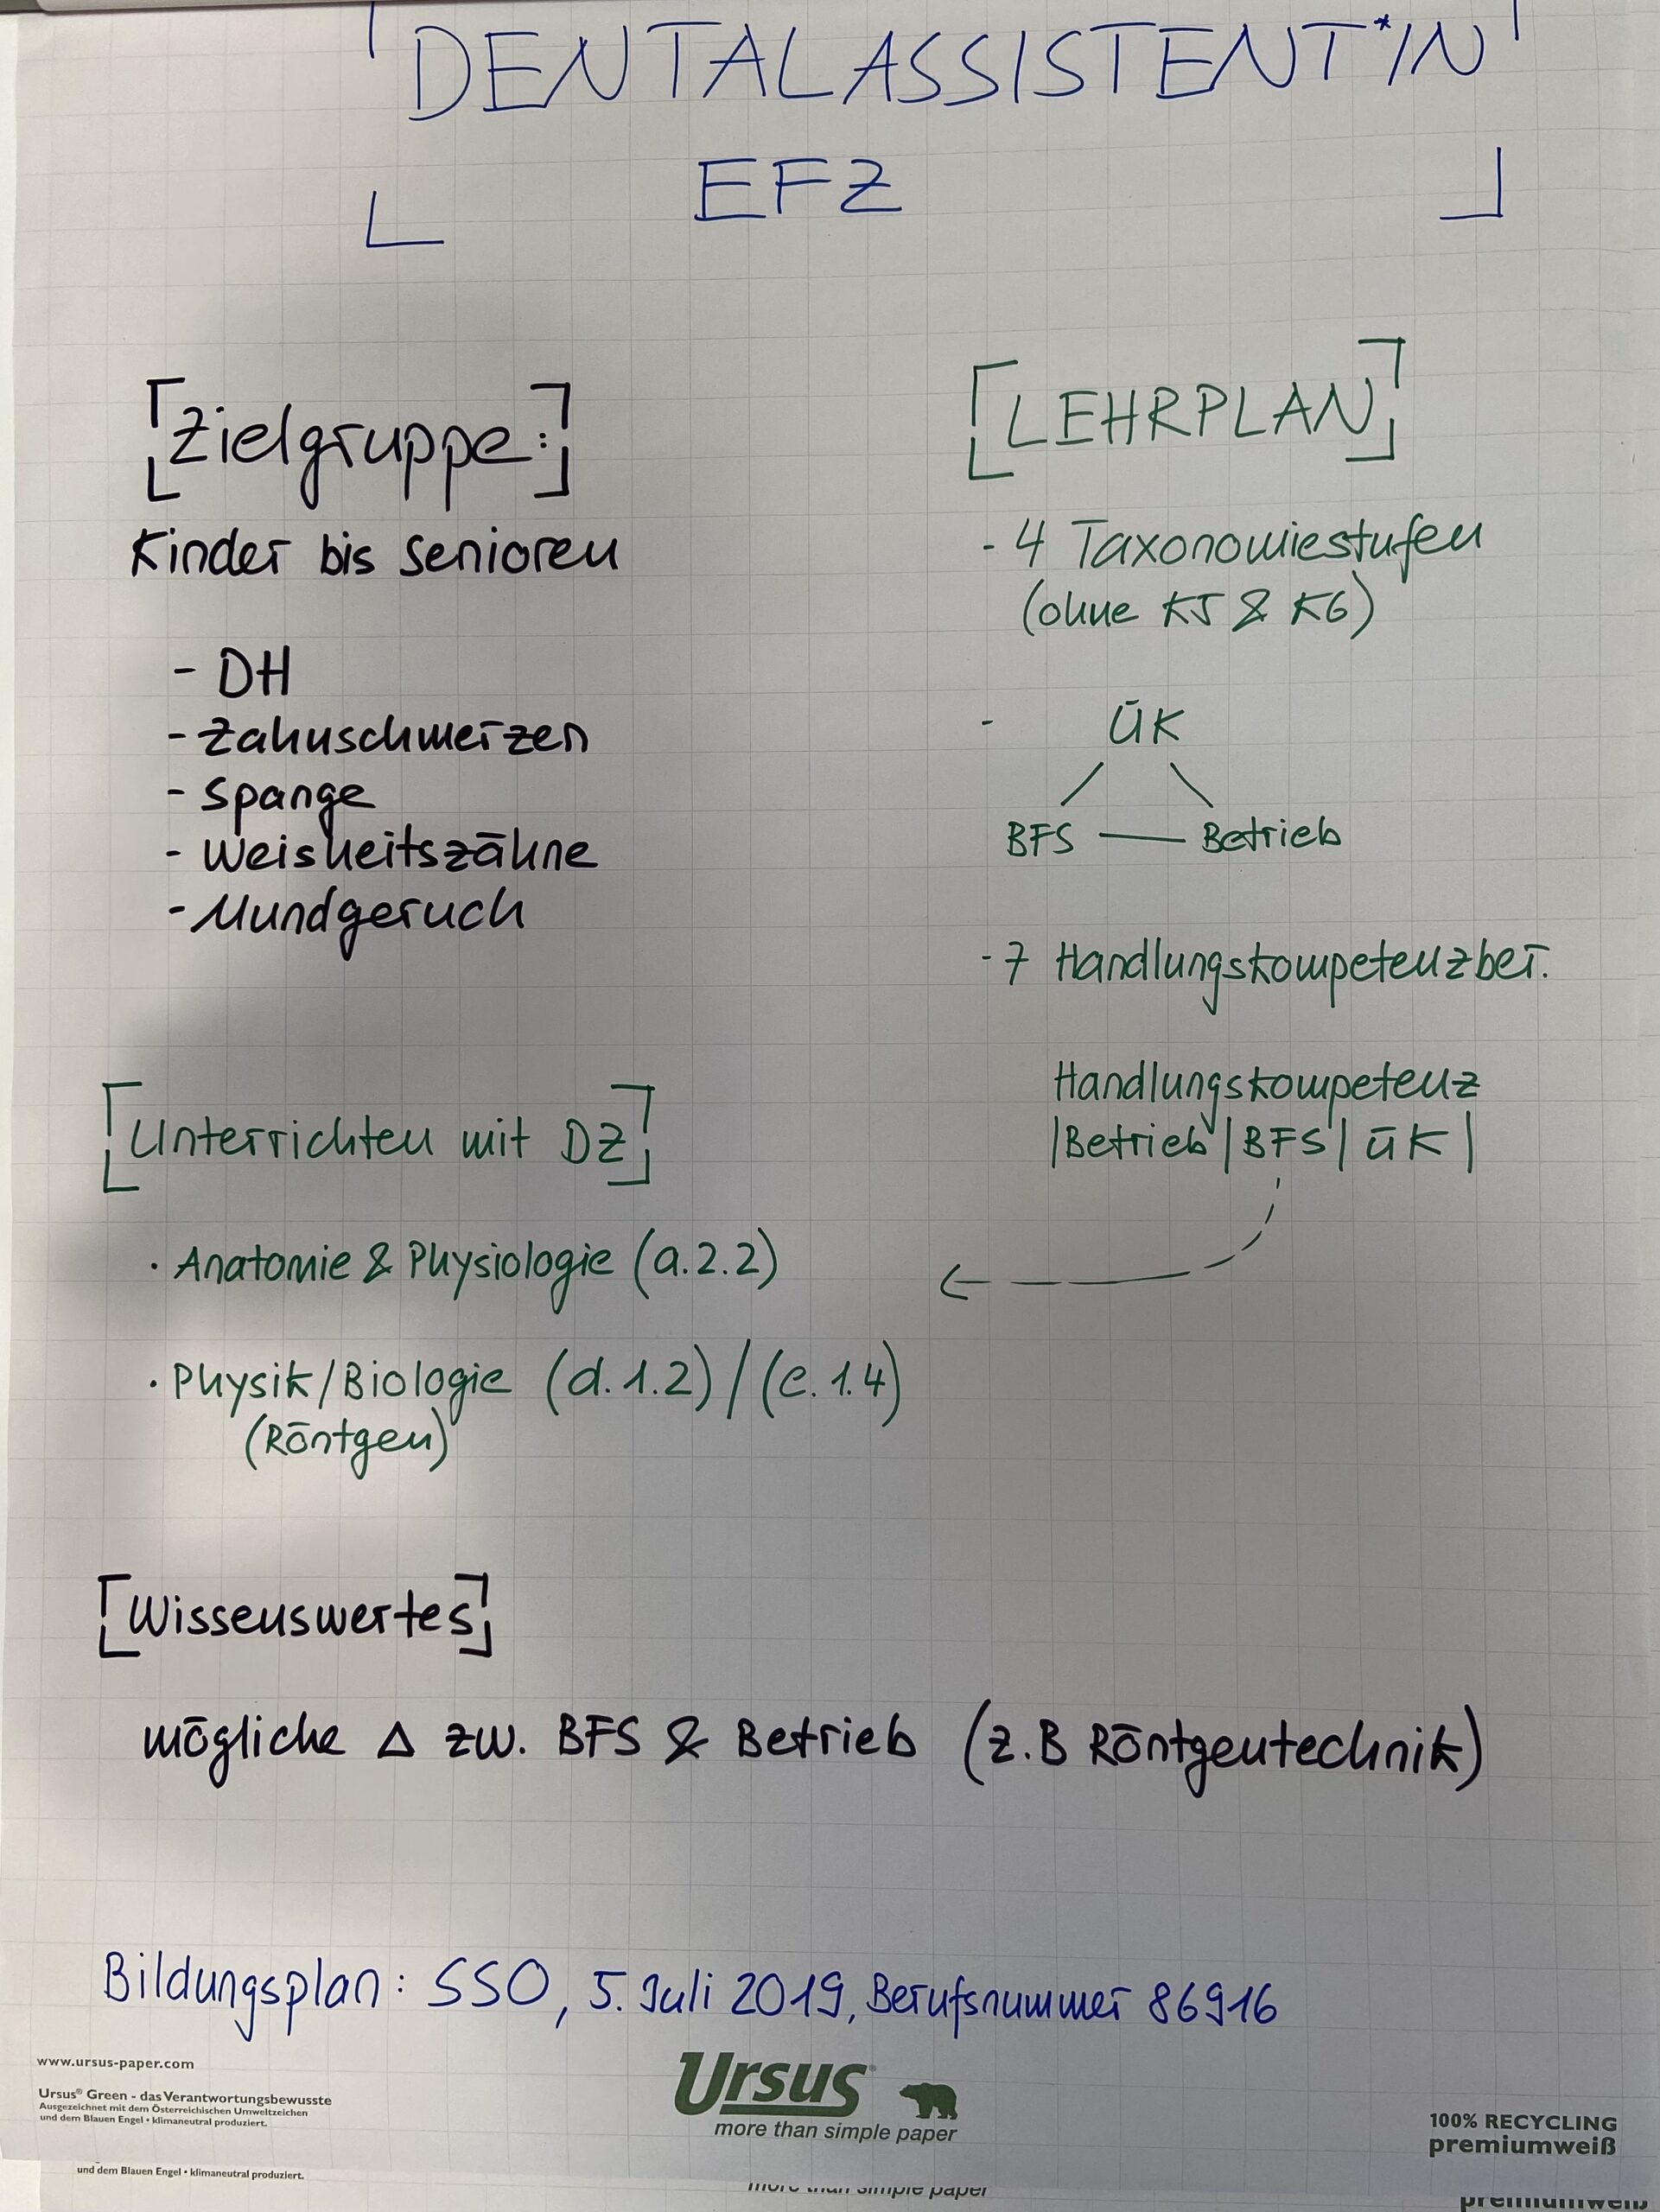 DENTALASSISTENT*IN
EFZ
Zielgruppe:
Kinder bis Senioren
- DH
- Zahnschmerzen
- Spange
- Weisheitszähne
- Mundgeruch
LEHRPLAN
- 4 Taxonomiestufen
(ohne K5 & K6)
- ÜK
BFS — Betrieb
- 7 Handlungskompetenzber.
Handlungskompetenz
|Betrieb|BFS|ÜK|
Unterrichten mit DZ
· Anatomie & Physiologie (a.2.2)
· Physik/Biologie (d.1.2)/(e.1.4)
(Röntgen)
Wissenswertes
mögliche Δ zw. BFS & Betrieb (z.B Röntgentechnik)
Bildungsplan: SSO, 5. Juli 2019, Berufsnummer 86916
www.ursus-paper.com
Ursus® Green - das Verantwortungsbewusste
Ausgezeichnet mit dem Österreichischen Umweltzeichen
und dem Blauen Engel • klimaneutral produziert.
Ursus®
more than simple paper
100% RECYCLING
premiumweiß
und dem Blauen Engel • klimaneutral produziert.
more than simple paper
premiumweiß